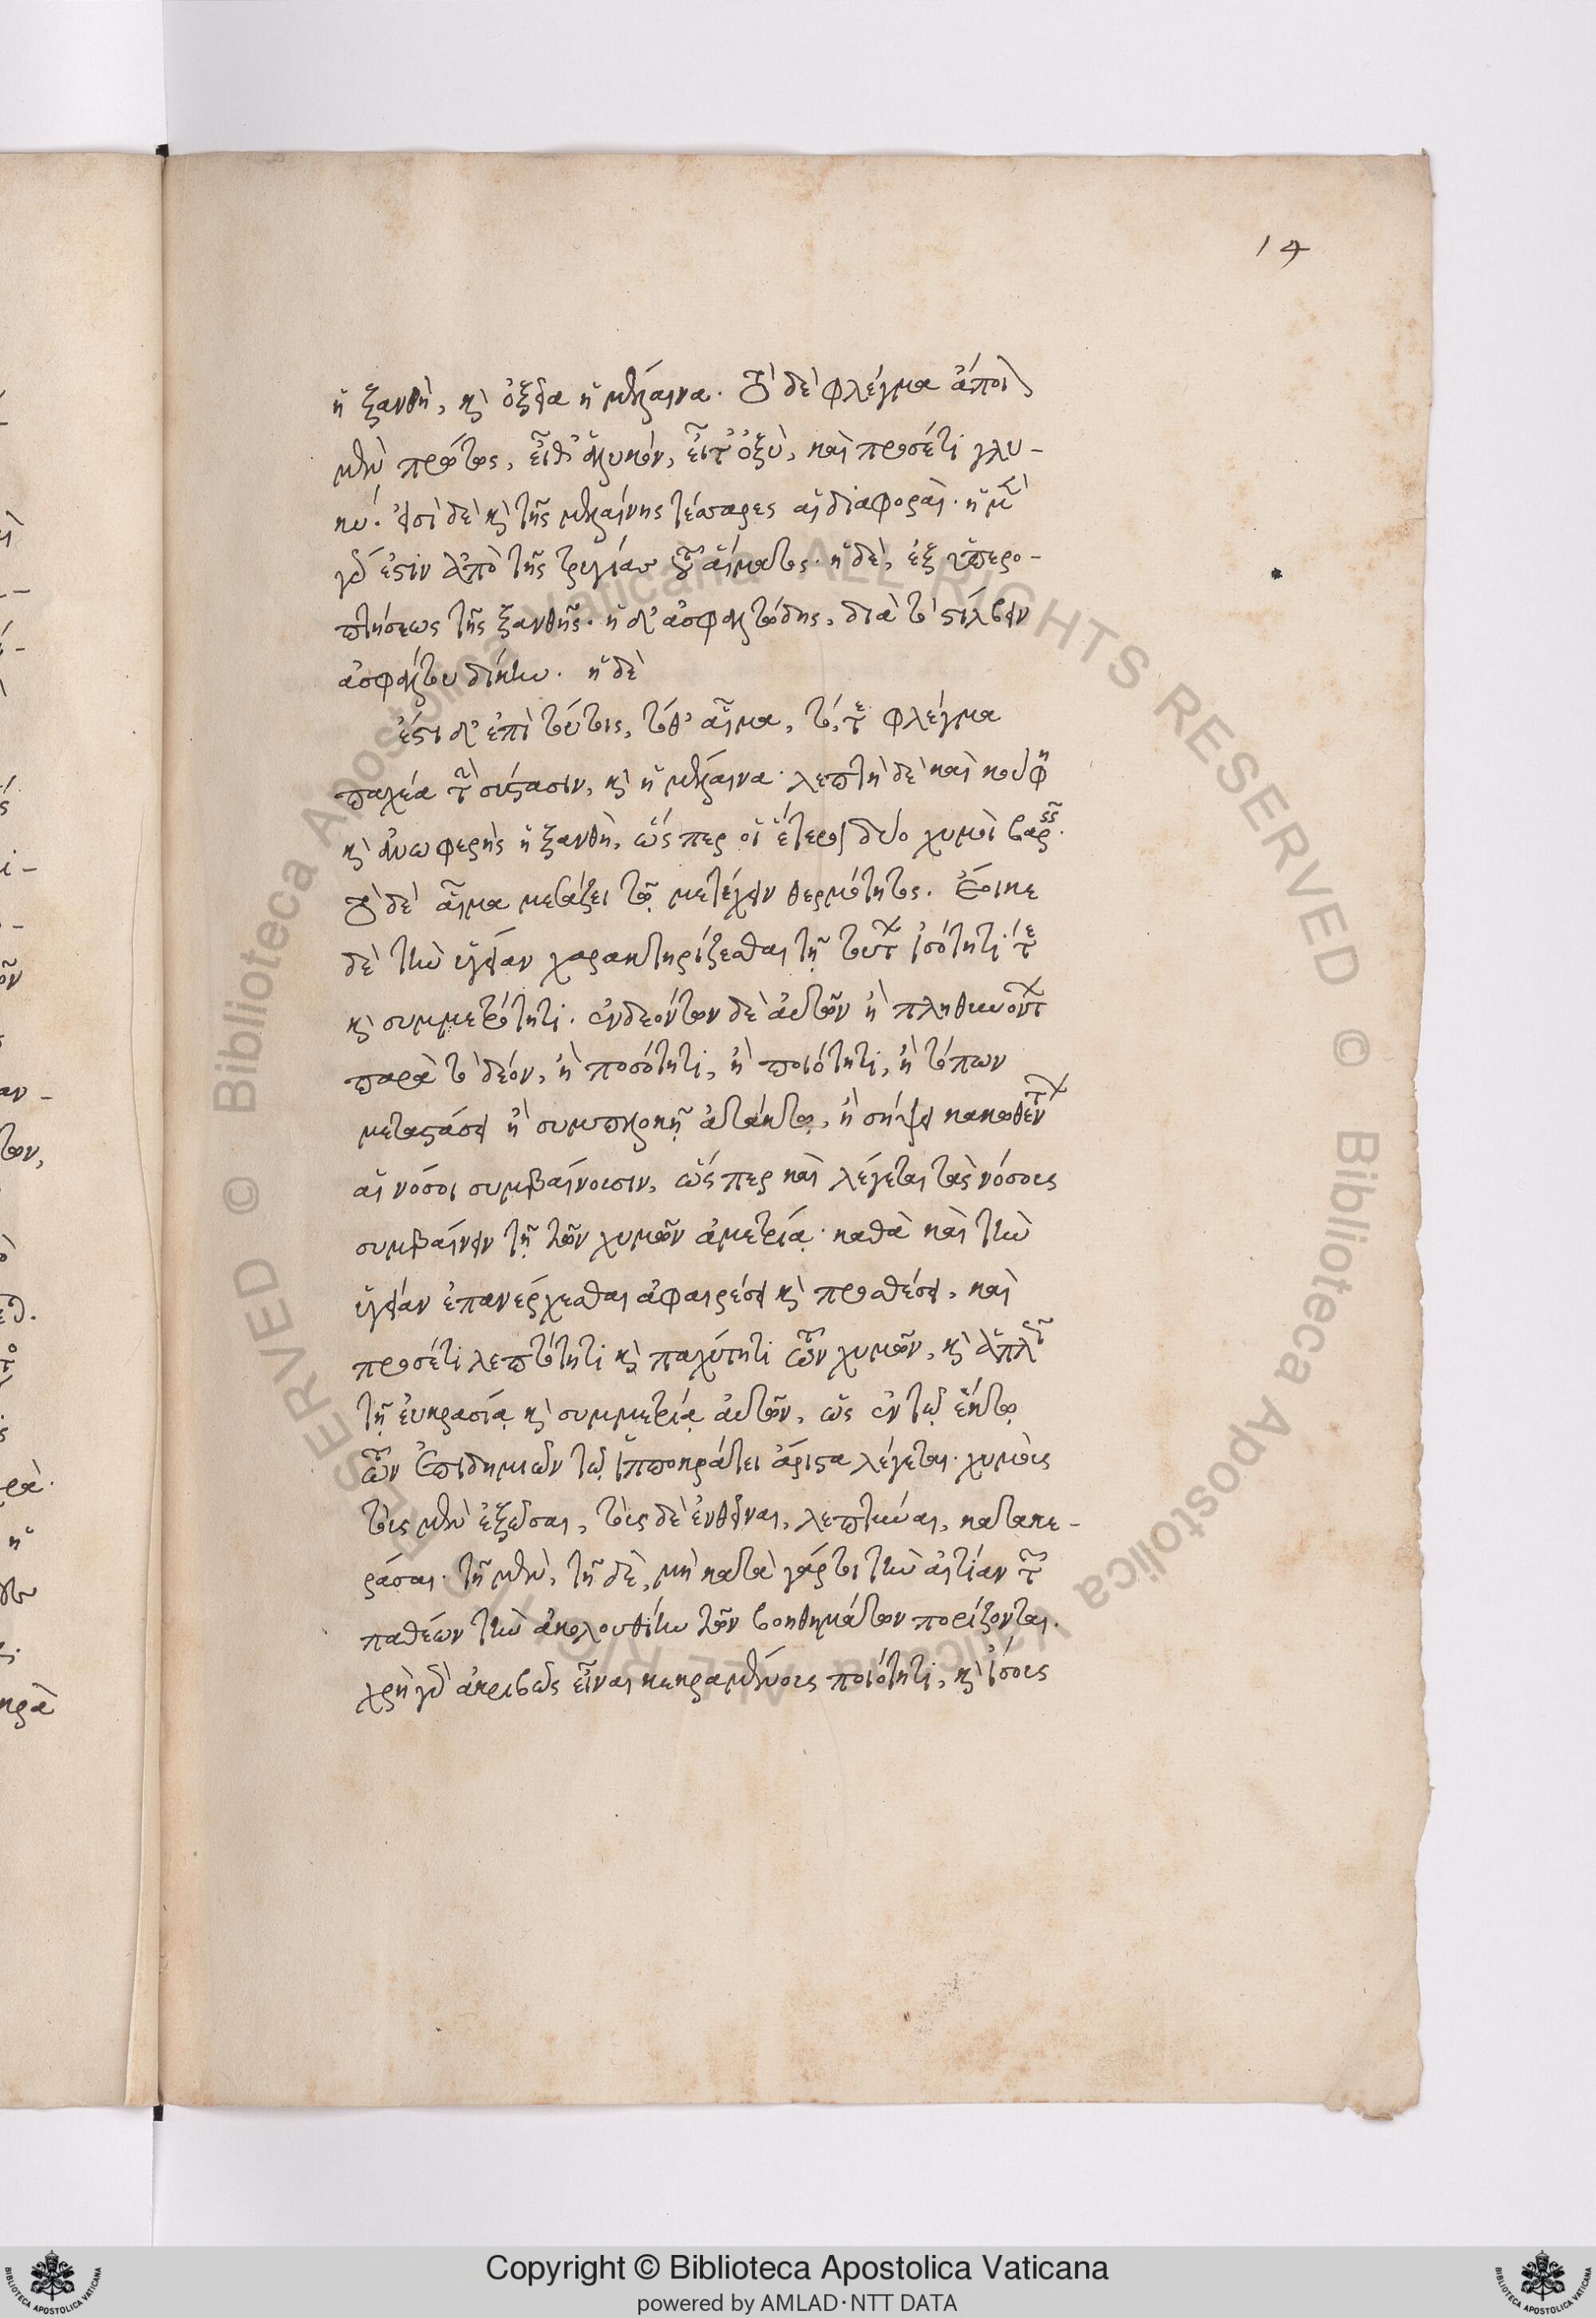 14
ἡ ξανθὴ, κ̀ ὀξεῖα ἡ μέλαινα. Τὸ δὲ φλέγμα ἄποι-
μὲν πρῶτος, εἶθ' ἁλυκὸν, εἶτ' ὀξὺ, καὶ προσέτι γλυ-
κύ. εἰσὶ δὲ κ̀ τῆς μελαίνης τέσσαρες αἱ διαφοραὶ. ἡ μὲν
γάρ ἐστιν ἀπὸ τῆς τρυγίας τοῦ αἵματος. ἡ δὲ, ἐξ ὑπερο-
πτήσεως τῆς ξανθῆς. ἡ δ' ἀσφαλτώδης, διὰ τὸ στίλβειν
ἀσφάλτου δίκην. ἡ δὲ
ἔστι δ' ἐπὶ τούτοις, τό θ' αἷμα, τό, τε φλέγμα
παχέα τὴ σύστασιν, κ̀ ἡ μέλαινα. λεπτὴ δὲ καὶ κούφη
κ̀ ἀνωφερὴς ἡ ξανθὴ, ὥσπερ οἱ ἕτεροι δύο χυμοὶ βαρεῖς.
Τὸ δὲ αἷμα μεσάζει τῷ μετέχειν θερμότητος. Ἔοικε
δὲ τὴν ὑγείαν χαρακτηρίζεσθαι τῇ τούτων ἰσότητί τε
κ̀ συμμετρότητι. ἐνδεόντων δὲ αὐτῶν ἢ πληθυνόντων
παρὰ τὸ δέον, ἢ ποσότητι, ἢ ποιότητι, ἢ τόπων
μεταστάσει ἢ συμπλοκῇ ἀτάκτῳ, ἢ σήψει κακωθέντων
αἱ νόσοι συμβαίνουσιν, ὥσπερ καὶ λέγεται τὰς νόσους
συμβαίνειν τῇ τῶν χυμῶν ἀμετρίᾳ. καθὰ καὶ τὴν
ὑγείαν ἐπανέρχεσθαι ἀφαιρέσει κ̀ προσθέσει, καὶ
προσέτι λεπτότητι κ̀ παχύτητι τῶν χυμῶν, κ̀ ἁπλῶς
τῇ εὐκρασίᾳ κ̀ συμμετρίᾳ αὐτῶν, ὡς ἐν τῷ ἕκτῳ
τῶν Ἐπιδημιῶν τῷ ἱπποκράτει ἄριστα λέγεται. χυμοὺς
τοὺς μὲν ἐξεῶσαι, τοὺς δὲ ἐνθεῖναι, λεπτῦναι, κατακε-
ράσαι. τῇ μὲν, τῇ δὲ, μὴ κατὰ γάρ τοι τὴν αἰτίαν τῶν
παθέων τὴν ἀκολουθίαν τῶν βοηθημάτων πορίζονται.
χρὴ γὰρ ἀκριβῶς εἶναι κεκραμένους ποιότητι, κ̀ ἴσους
Copyright © Biblioteca Apostolica Vaticana
powered by AMLAD·NTT DATA